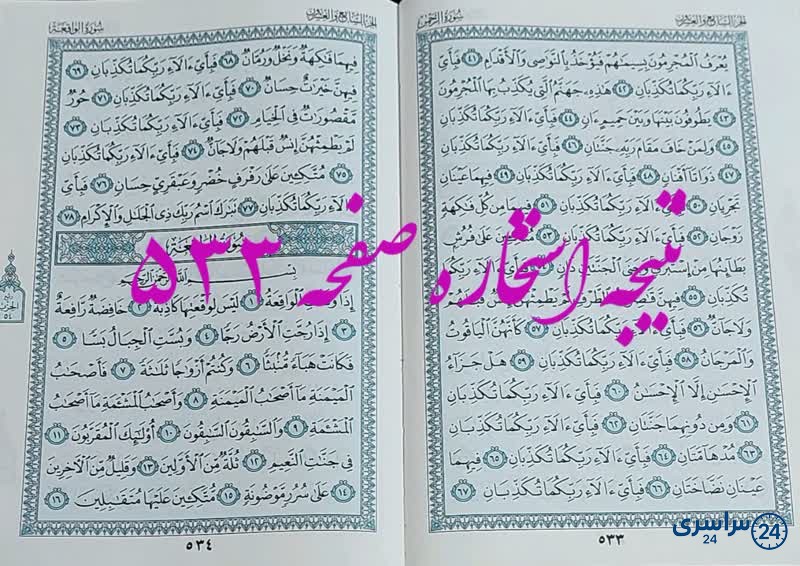 الجزء السابع والعشرون
سورة الرحمن
يُعْرَفُ الْمُجْرِمُونَ بِسِيمَٰهُمْ فَيُؤْخَذُ بِالنَّوَٰصِي وَالْأَقْدَامِ ٤١ فَبِأَيِّ
ءَالَآءِ رَبِّكُمَا تُكَذِّبَانِ ٤٢ هَٰذِهِۦ جَهَنَّمُ الَّتِي يُكَذِّبُ بِهَا الْمُجْرِمُونَ
٤٣ يَطُوفُونَ بَيْنَهَا وَبَيْنَ حَمِيمٍ ءَانٍ ٤٤ فَبِأَيِّ ءَالَآءِ رَبِّكُمَا تُكَذِّبَانِ
٤٥ وَلِمَنْ خَافَ مَقَامَ رَبِّهِۦ جَنَّتَانِ ٤٦ فَبِأَيِّ ءَالَآءِ رَبِّكُمَا تُكَذِّبَانِ
٤٧ ذَوَاتَآ أَفْنَانٍ ٤٨ فَبِأَيِّ ءَالَآءِ رَبِّكُمَا تُكَذِّبَانِ ٤٩ فِيهِمَا عَيْنَانِ
تَجْرِيَانِ ٥٠ فَبِأَيِّ ءَالَآءِ رَبِّكُمَا تُكَذِّبَانِ ٥١ فِيهِمَا مِن كُلِّ فَٰكِهَةٍ
زَوْجَانِ ٥٢ فَبِأَيِّ ءَالَآءِ رَبِّكُمَا تُكَذِّبَانِ ٥٣ مُتَّكِـِٔينَ عَلَىٰ فُرُشٍ
بَطَآئِنُهَا مِنْ إِسْتَبْرَقٍ وَجَنَى الْجَنَّتَيْنِ دَانٍ ٥٤ فَبِأَيِّ ءَالَآءِ رَبِّكُمَا
تُكَذِّبَانِ ٥٥ فِيهِنَّ قَٰصِرَٰتُ الطَّرْفِ لَمْ يَطْمِثْهُنَّ إِنسٌ قَبْلَهُمْ
وَلَا جَآنٌّ ٥٦ فَبِأَيِّ ءَالَآءِ رَبِّكُمَا تُكَذِّبَانِ ٥٧ كَأَنَّهُنَّ الْيَاقُوتُ
وَالْمَرْجَانُ ٥٨ فَبِأَيِّ ءَالَآءِ رَبِّكُمَا تُكَذِّبَانِ ٥٩ هَلْ جَزَآءُ
الْإِحْسَٰنِ إِلَّا الْإِحْسَٰنُ ٦٠ فَبِأَيِّ ءَالَآءِ رَبِّكُمَا تُكَذِّبَانِ
٦١ وَمِن دُونِهِمَا جَنَّتَانِ ٦٢ فَبِأَيِّ ءَالَآءِ رَبِّكُمَا تُكَذِّبَانِ
٦٣ مُدْهَآمَّتَانِ ٦٤ فَبِأَيِّ ءَالَآءِ رَبِّكُمَا تُكَذِّبَانِ ٦٥ فِيهِمَا
عَيْنَانِ نَضَّاخَتَانِ ٦٦ فَبِأَيِّ ءَالَآءِ رَبِّكُمَا تُكَذِّبَانِ ٦٧
٥٣٣
الجزء السابع والعشرون
سورة الواقعة
فِيهِمَا فَٰكِهَةٌ وَنَخْلٌ وَرُمَّانٌ ٦٨ فَبِأَيِّ ءَالَآءِ رَبِّكُمَا تُكَذِّبَانِ ٦٩
فِيهِنَّ خَيْرَٰتٌ حِسَانٌ ٧٠ فَبِأَيِّ ءَالَآءِ رَبِّكُمَا تُكَذِّبَانِ ٧١ حُورٌ
مَّقْصُورَٰتٌ فِي الْخِيَامِ ٧٢ فَبِأَيِّ ءَالَآءِ رَبِّكُمَا تُكَذِّبَانِ ٧٣
لَمْ يَطْمِثْهُنَّ إِنسٌ قَبْلَهُمْ وَلَا جَآنٌّ ٧٤ فَبِأَيِّ ءَالَآءِ رَبِّكُمَا تُكَذِّبَانِ
٧٥ مُتَّكِـِٔينَ عَلَىٰ رَفْرَفٍ خُضْرٍ وَعَبْقَرِيٍّ حِسَانٍ ٧٦ فَبِأَيِّ
ءَالَآءِ رَبِّكُمَا تُكَذِّبَانِ ٧٧ تَبَٰرَكَ اسْمُ رَبِّكَ ذِي الْجَلَٰلِ وَالْإِكْرَامِ ٧٨
سُورَةُ الوَاقِعَةِ
بِسْمِ اللَّهِ الرَّحْمَٰنِ الرَّحِيمِ
إِذَا وَقَعَتِ الْوَاقِعَةُ ١ لَيْسَ لِوَقْعَتِهَا كَاذِبَةٌ ٢ خَافِضَةٌ رَّافِعَةٌ
٣ إِذَا رُجَّتِ الْأَرْضُ رَجًّا ٤ وَبُسَّتِ الْجِبَالُ بَسًّا ٥
فَكَانَتْ هَبَآءً مُّنۢبَثًّا ٦ وَكُنتُمْ أَزْوَٰجًا ثَلَٰثَةً ٧ فَأَصْحَٰبُ
الْمَيْمَنَةِ مَآ أَصْحَٰبُ الْمَيْمَنَةِ ٨ وَأَصْحَٰبُ الْمَشْـَٔمَةِ مَآ أَصْحَٰبُ
الْمَشْـَٔمَةِ ٩ وَالسَّٰبِقُونَ السَّٰبِقُونَ ١٠ أُو۟لَٰٓئِكَ الْمُقَرَّبُونَ ١١
فِي جَنَّٰتِ النَّعِيمِ ١٢ ثُلَّةٌ مِّنَ الْأَوَّلِينَ ١٣ وَقَلِيلٌ مِّنَ الْآخِرِينَ
١٤ عَلَىٰ سُرُرٍ مَّوْضُونَةٍ ١٥ مُّتَّكِـِٔينَ عَلَيْهَا مُتَقَٰبِلِينَ ١٦
٥٣٤
نتیجه استخاره صفحه ۵۳۳
سراسری
24
24